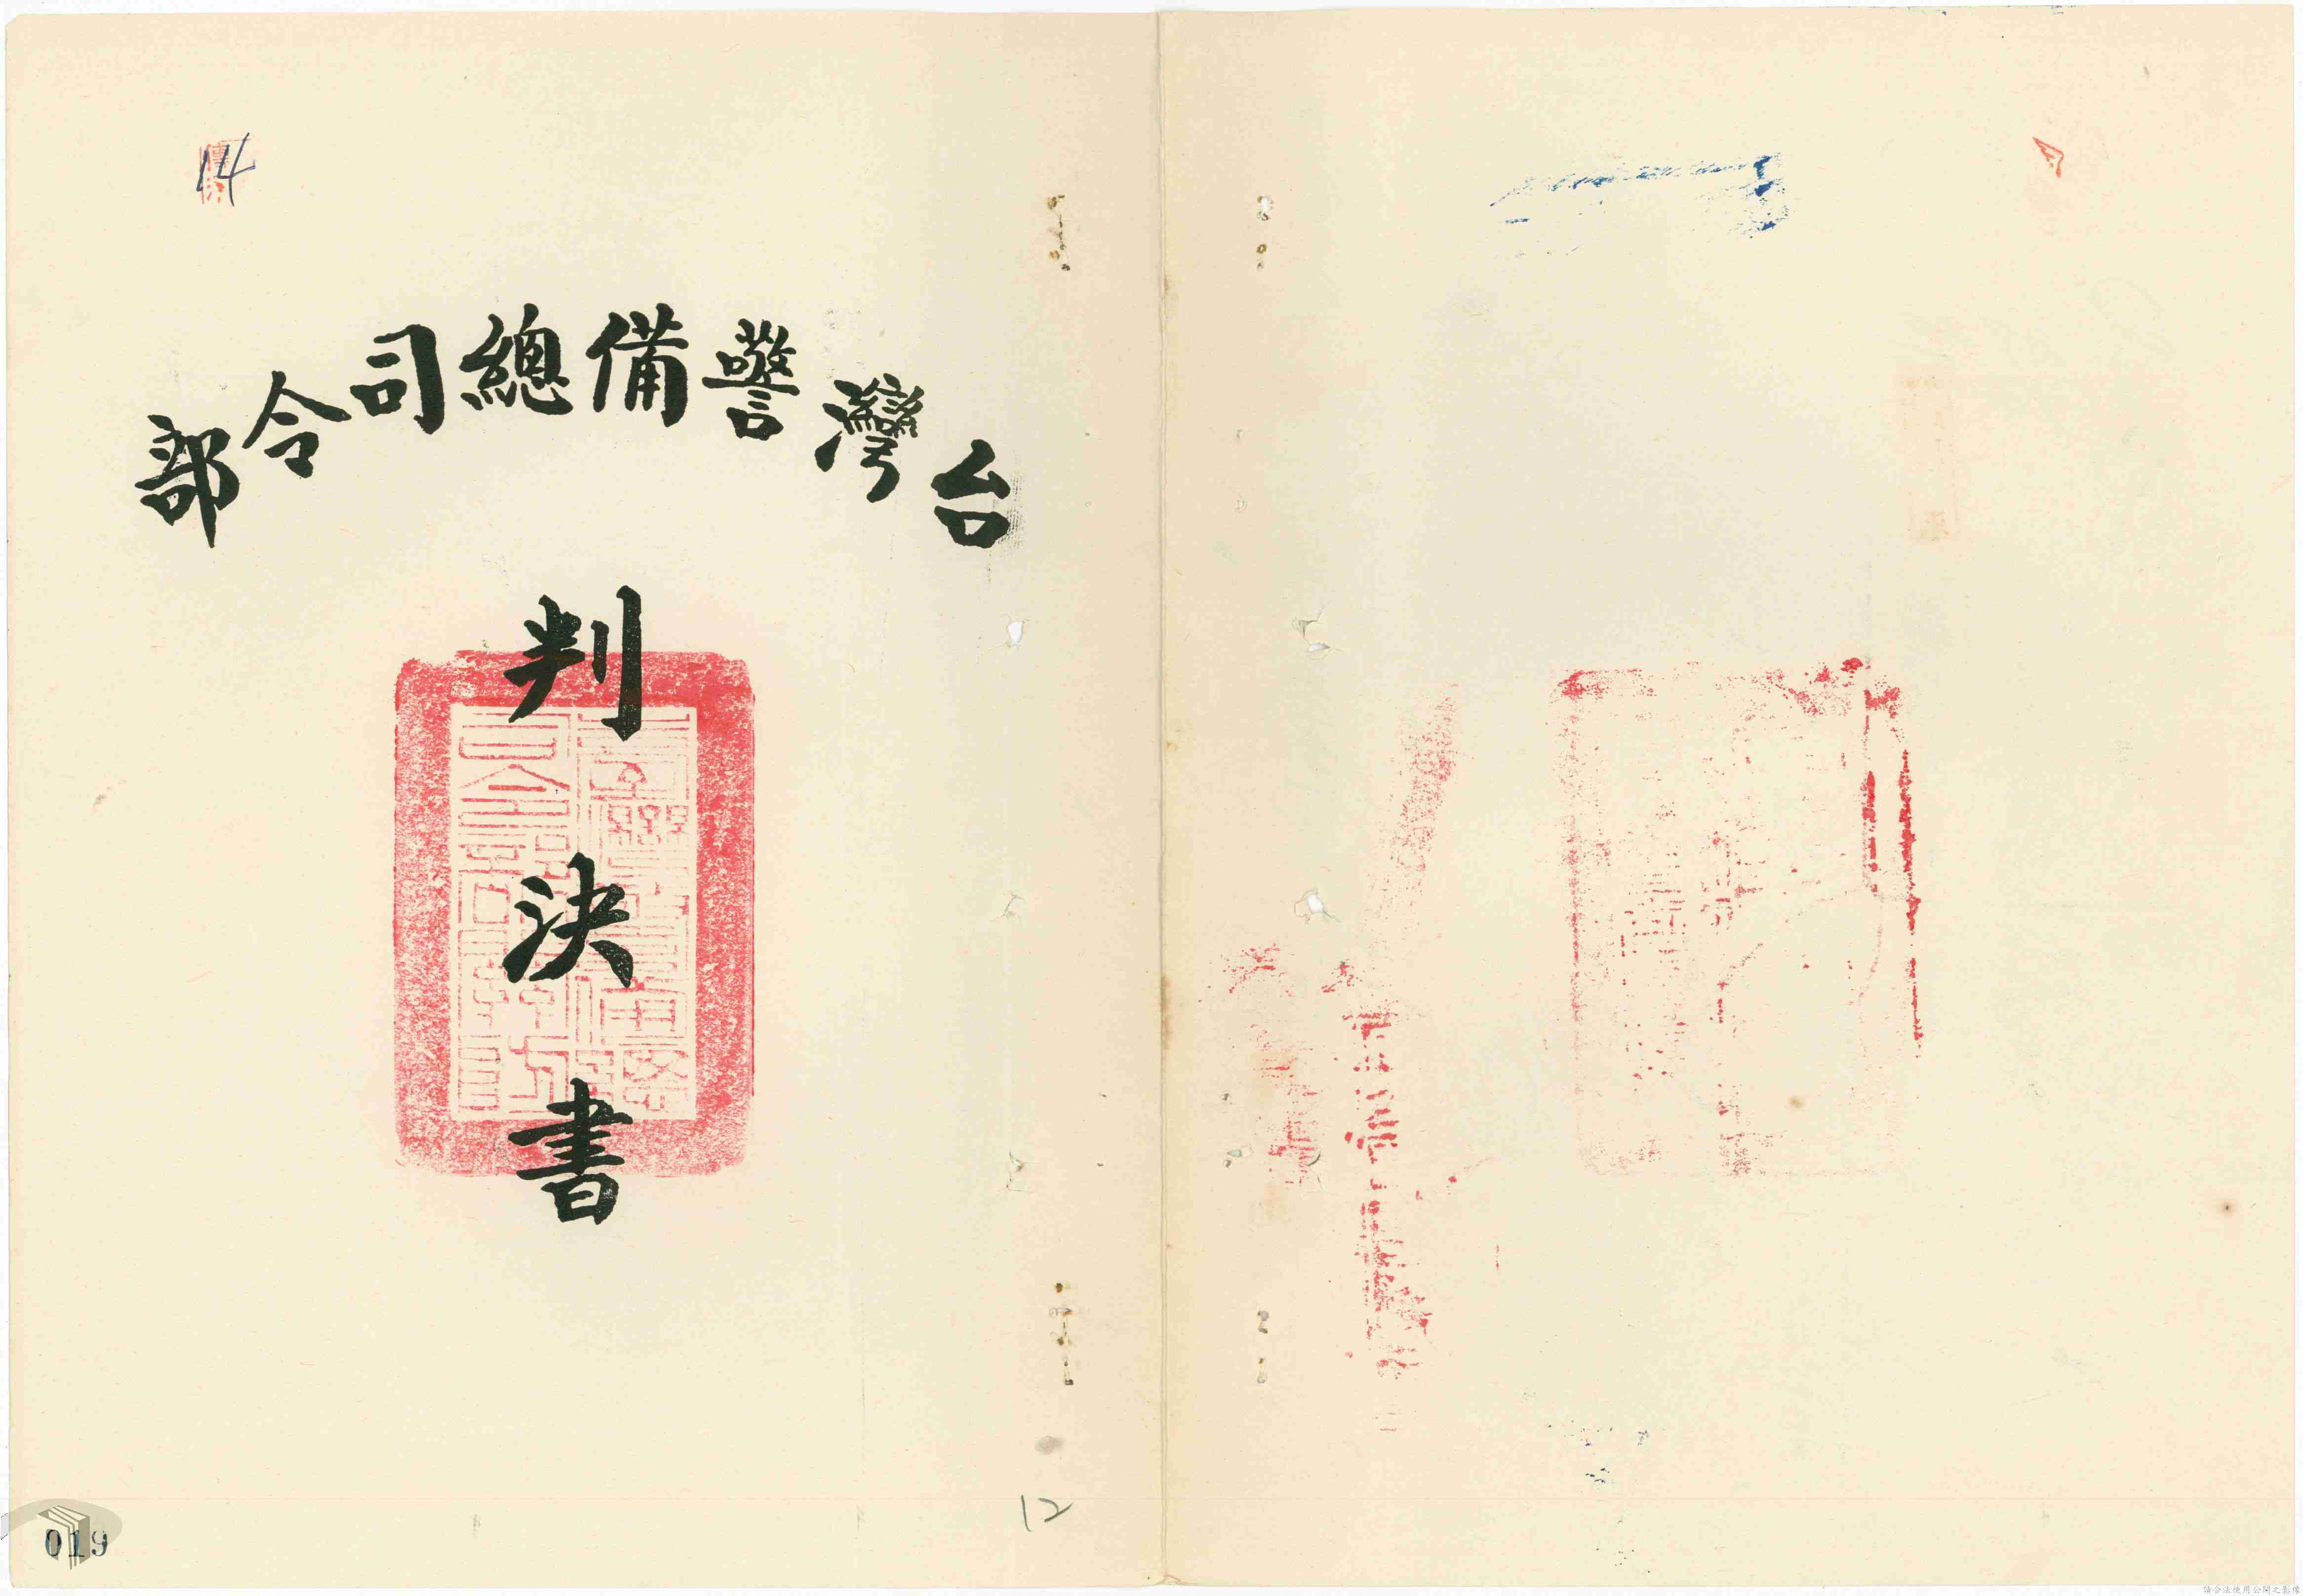 14
台灣警備總司令部
判決書
12
019
請合法使用公開之影像